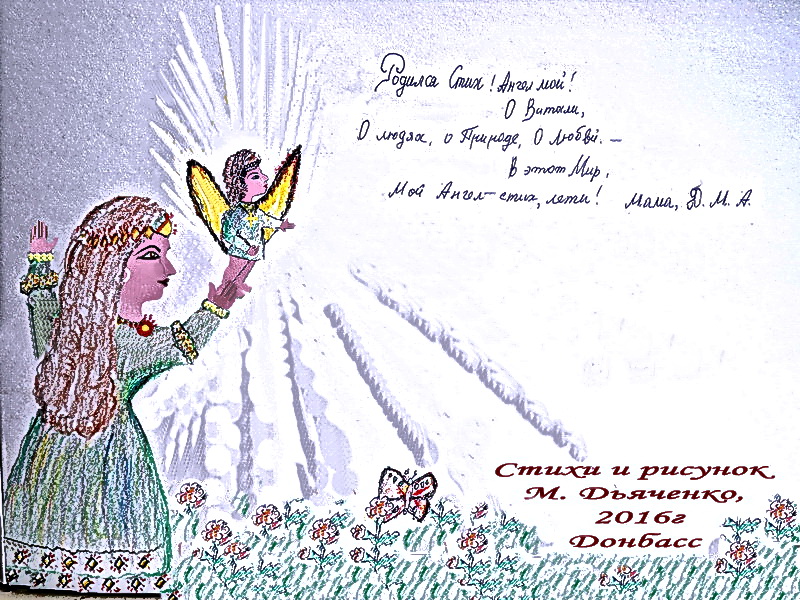 Родился Стих! Ангел мой!
О Витали,
О людях, о Природе, О Любви. –
В этот Мир,
Мой Ангел–стих, лети! Мама, Д. М. А.
Стихи и рисунок
М. Дьяченко,
2016г
Донбасс